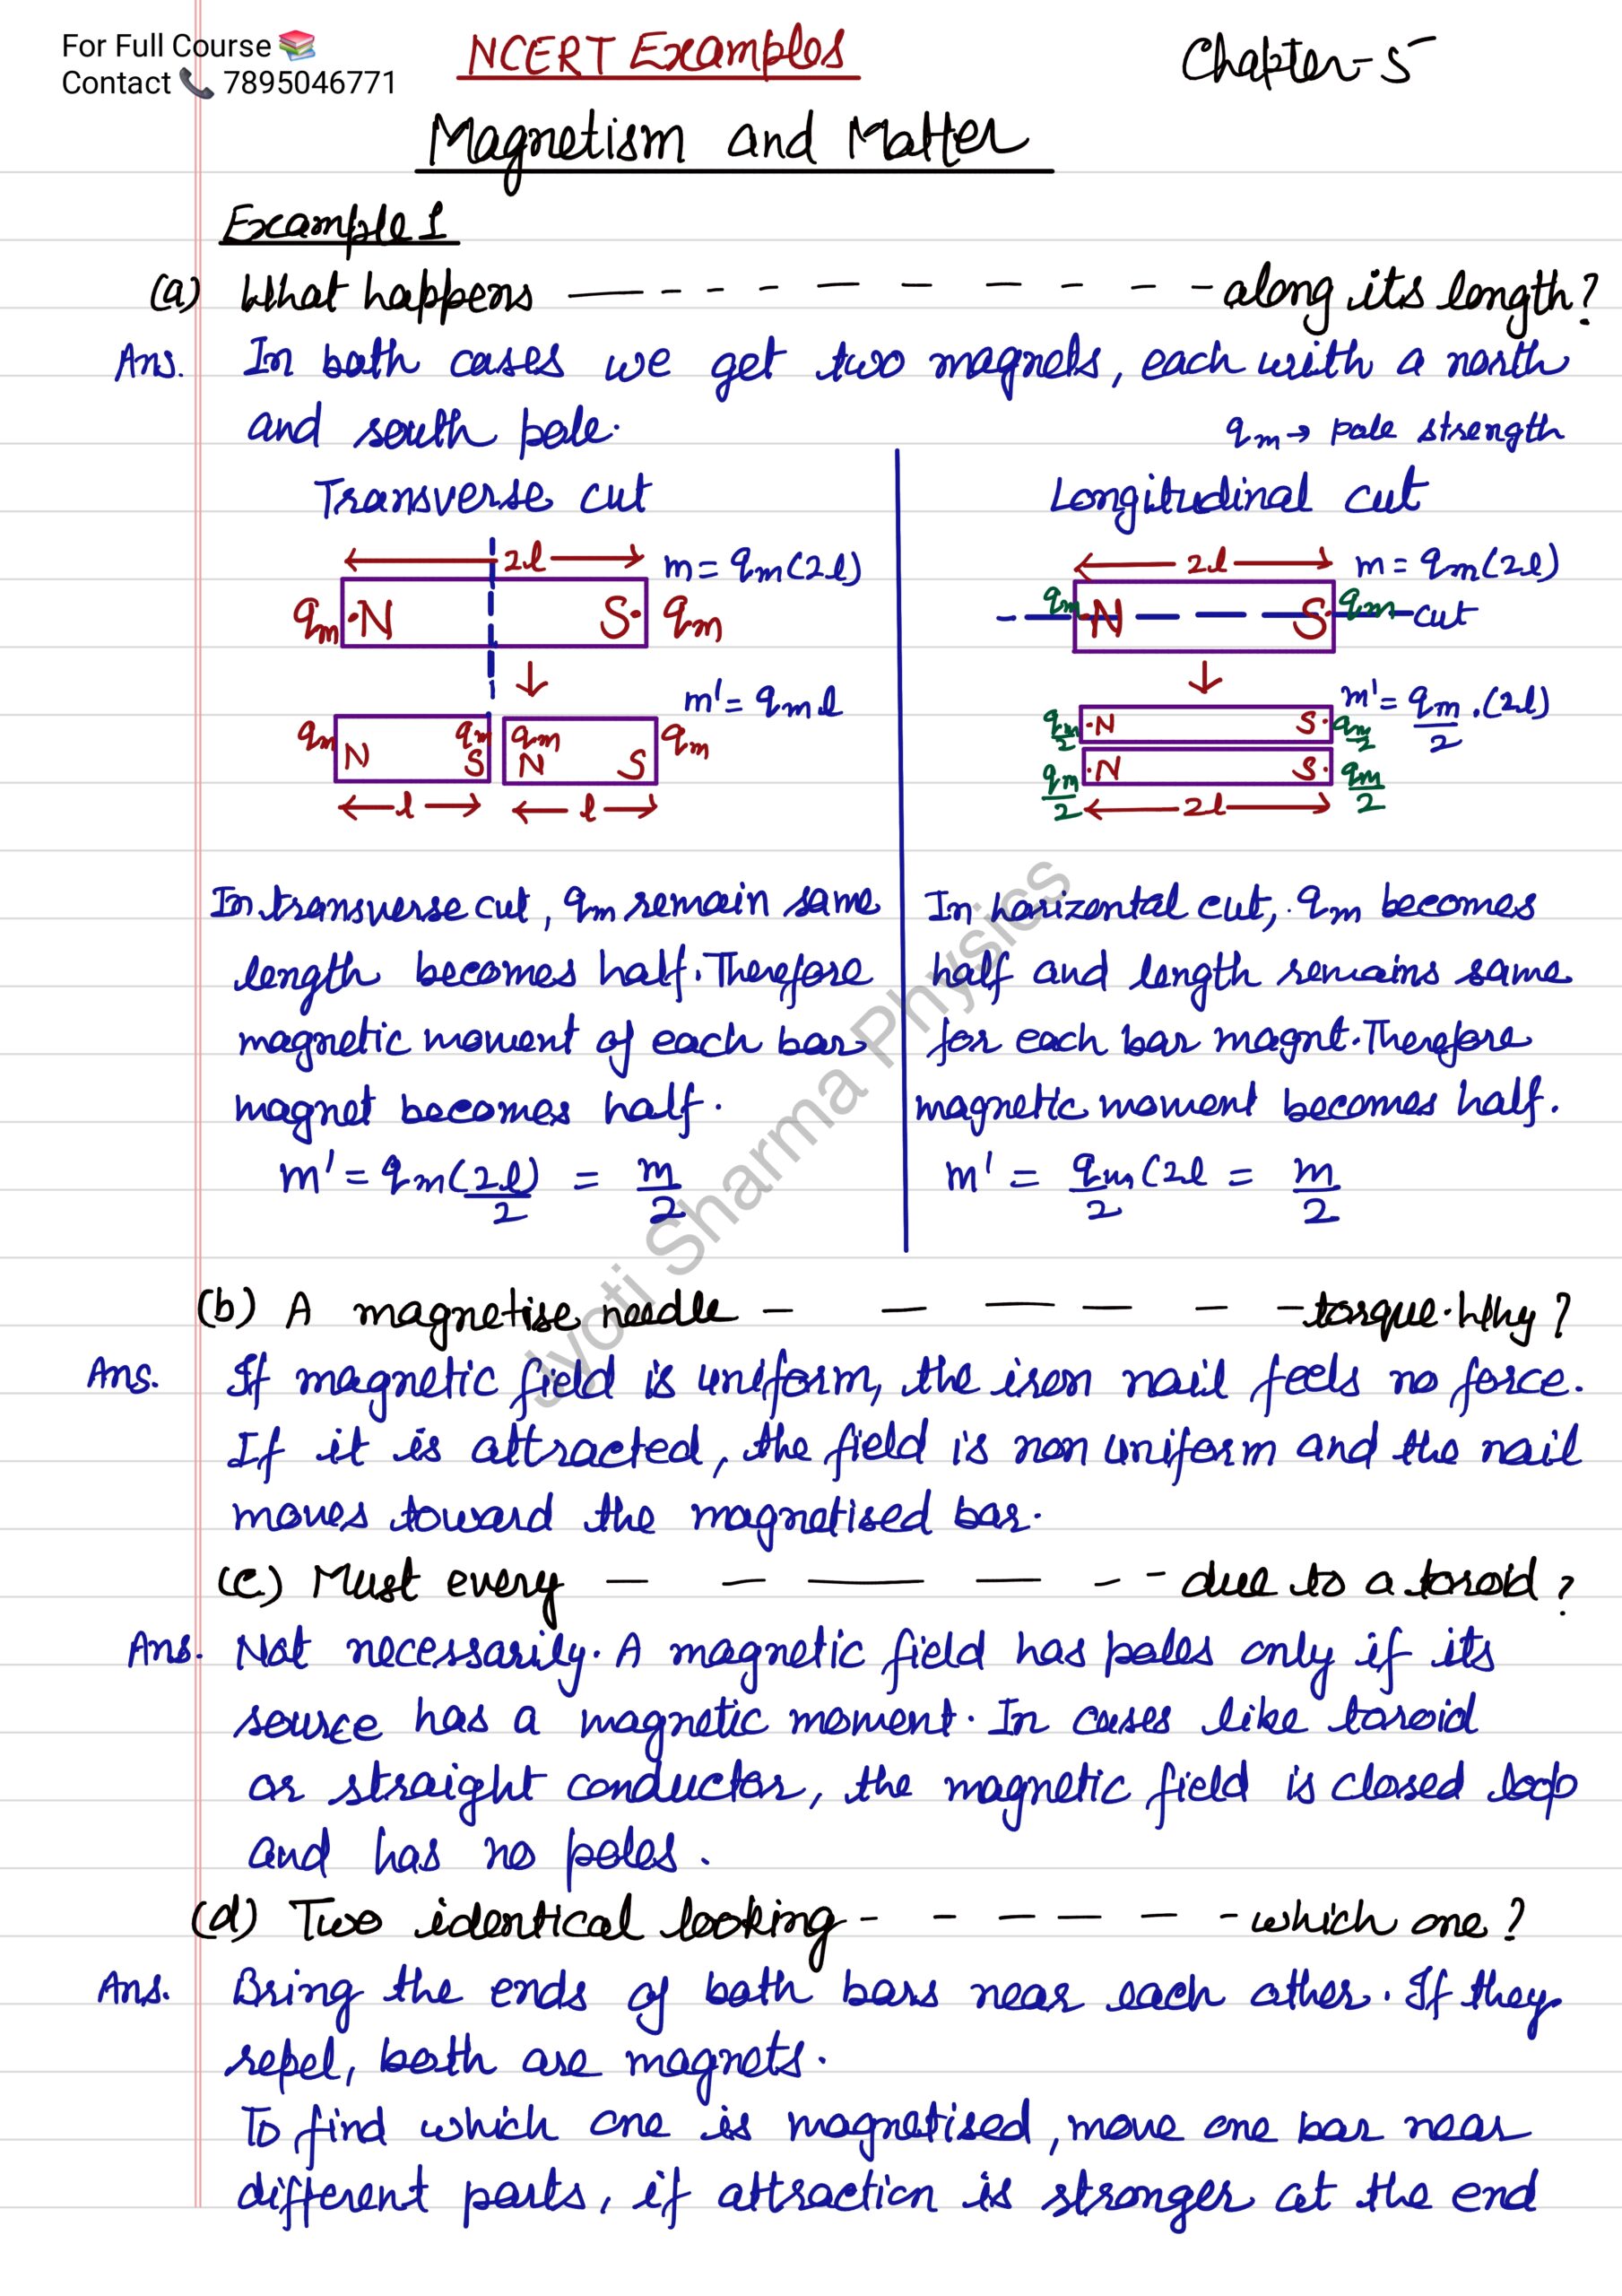 For Full Course 📚
Contact 📞 7895046771
NCERT Examples
Chapter-5
Magnetism and Matter
Example 1
(a) What happens ———- - - — — — - — - along its length?
Ans. In both cases we get two magnets, each with a north
and south pole.
qm → pole strength
Transverse cut
2l
m = qm(2l)
qm ·N S· qm
↓
m' = qm l
qm N qm S qm N S qm
l l
In transverse cut, qm remain same
length becomes half. Therefore
magnetic moment of each bar
magnet becomes half.
m' = qm(2l)/2 = m/2
Longitudinal cut
2l
m = qm(2l)
qm ·N S· qm cut
↓
m' = qm/2 . (2l)
qm/2 ·N S· qm/2
qm/2 ·N S· qm/2
2l
In horizontal cut, qm becomes
half and length remains same
for each bar magnt. Therefore
magnetic moment becomes half.
m' = qm/2 (2l = m/2
(b) A magnetise needle — — — — - - torque. Why?
Ans. If magnetic field is uniform, the iron nail feels no force.
If it is attracted, the field is non uniform and the nail
moves toward the magnetised bar.
(c) Must every — — —— — - - due to a toroid?
Ans. Not necessarily. A magnetic field has poles only if its
source has a magnetic moment. In cases like toroid
or straight conductor, the magnetic field is closed loop
and has no poles.
(d) Two identical looking - - — — — - - which one?
Ans. Bring the ends of both bars near each other. If they
repel, both are magnets.
To find which one is magnetised, move one bar near
different parts, if attraction is stronger at the end
Jyoti Sharma Physics